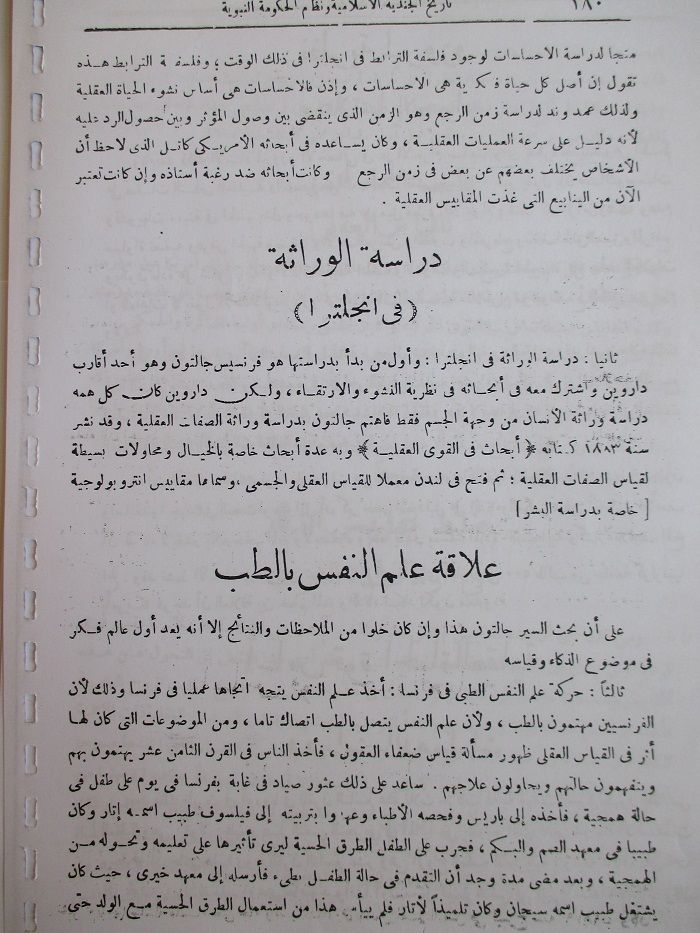 ١٨٠ تاريخ الجندية الاسلامية ونظام الحكومة النبوية
متجا لدراسة الاحساسات لوجود فلسفة الترابط فى انجلترا فى ذلك الوقت ؛ وفلسفة الترابط هــذه
تقول إن أصل كل حياة فكرية هى الاحساسات ، وإذن فالاحساسات هى أساس نشوء الحياة العقلية
ولذلك عمد وند لدراسة زمن الرجع وهو الزمن الذى ينقضى بين وصول المؤثر وبين حصول الرد عليه
لأنه دليل على سرعة العمليات العقلية ، وكان يساعده فى أبحاثه الأمريكى كاتل الذى لاحظ أن
الأشخاص يختلف بعضهم عن بعض فى زمن الرجع وكانت أبحاثه ضد رغبة أستاذه وإن كانت تعتبر
الآن من الينابيع التى غذت المقاييس العقلية .
دراسة الوراثة
(فى انجلترا)
ثانيا : دراسة الوراثة فى انجلترا : وأول من بدأ بدراستها هو فرنسيس جالتون وهو أحد أقارب
داروين واشترك معه فى أبحاثه فى نظرية النشوء والارتقاء ، ولكن داروين كان كل همه
دراسة وراثة الأنسان من وجهة الجسم فقط فاهتم جالتون بدراسة وراثة الصفات العقلية ، وقد نشر
سنة ١٨٨٣ كتابه ﴿ أبحاث فى القوى العقلية ﴾ وبه عدة أبحاث خاصة بالخيال ومحاولات بسيطة
لقياس الصفات العقلية ؛ ثم فتح فى لندن معملا للقياس العقلى والجسمى ، وسماها مقاييس انتروبولوجية
[ خاصة بدراسة البشر ]
علاقة علم النفس بالطب
على أن بحث السير جالتون هذا وإن كان خلوا من الملاحظات والنتائج إلا أنه يعد أول عالم فكر
فى موضوع الذكاء وقياسه
ثالثاً : حركة علم النفس الطبى فى فرنسا : أخذ علم النفس يتجه اتجاها عمليا فى فرنسا وذلك لأن
الفرنسيين مهتمون بالطب ، ولأن علم النفس يتصل بالطب اتصالا تاما ، ومن الموضوعات التى كان لها
أثر فى القياس العقلى ظهور مسألة قياس ضعفاء العقول ، فأخذ الناس فى القرن الثامن عشر يهتمون بهم
ويتفهمون حالتهم ويحاولون علاجهم . ساعد على ذلك عثور صياد فى غابة بفرنسا فى يوم على طفل فى
حالة همجية ، فأخذه إلى باريس وفحصه الأطباء وعهدوا بتربيته إلى فيلسوف طبيب اسمه إتار وكان
طبيبا فى معهد الصم والبكم ، فجرب على الطفل الطرق الحسية ليرى تأثيرها على تعليمه وتحوله من
الهمجية ، وبعد مضى مدة وجد أن التقدم فى حالة الطفل بطىء فأرسله إلى معهد خيرى ، حيث كان
يشتغل طبيب اسمه سيجان وكان تلميذاً لأتار فلم ييأس هذا من استعمال الطرق الحسية مع الولد حتى